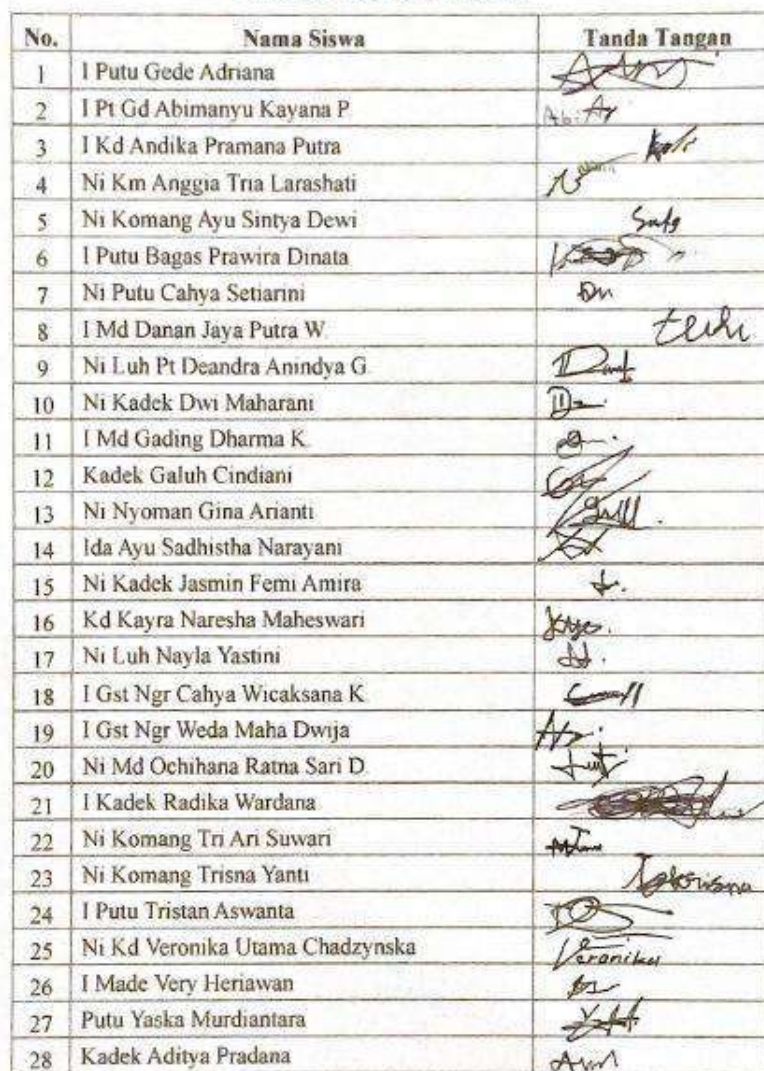 No. Nama Siswa Tanda Tangan
1 I Putu Gede Adriana
2 I Pt Gd Abimanyu Kayana P.
3 I Kd Andika Pramana Putra
4 Ni Km Anggia Tria Larashati
5 Ni Komang Ayu Sintya Dewi
6 I Putu Bagas Prawira Dinata
7 Ni Putu Cahya Setiarini
8 I Md Danan Jaya Putra W.
9 Ni Luh Pt Deandra Anindya G.
10 Ni Kadek Dwi Maharani
11 I Md Gading Dharma K.
12 Kadek Galuh Cindiani
13 Ni Nyoman Gina Arianti
14 Ida Ayu Sadhistha Narayani
15 Ni Kadek Jasmin Femi Amira
16 Kd Kayra Naresha Maheswari
17 Ni Luh Nayla Yastini
18 I Gst Ngr Cahya Wicaksana K.
19 I Gst Ngr Weda Maha Dwija
20 Ni Md Ochihana Ratna Sari D.
21 I Kadek Radika Wardana
22 Ni Komang Tri Ari Suwari
23 Ni Komang Trisna Yanti
24 I Putu Tristan Aswanta
25 Ni Kd Veronika Utama Chadzynska Veronika
26 I Made Very Heriawan
27 Putu Yaska Murdiantara
28 Kadek Aditya Pradana